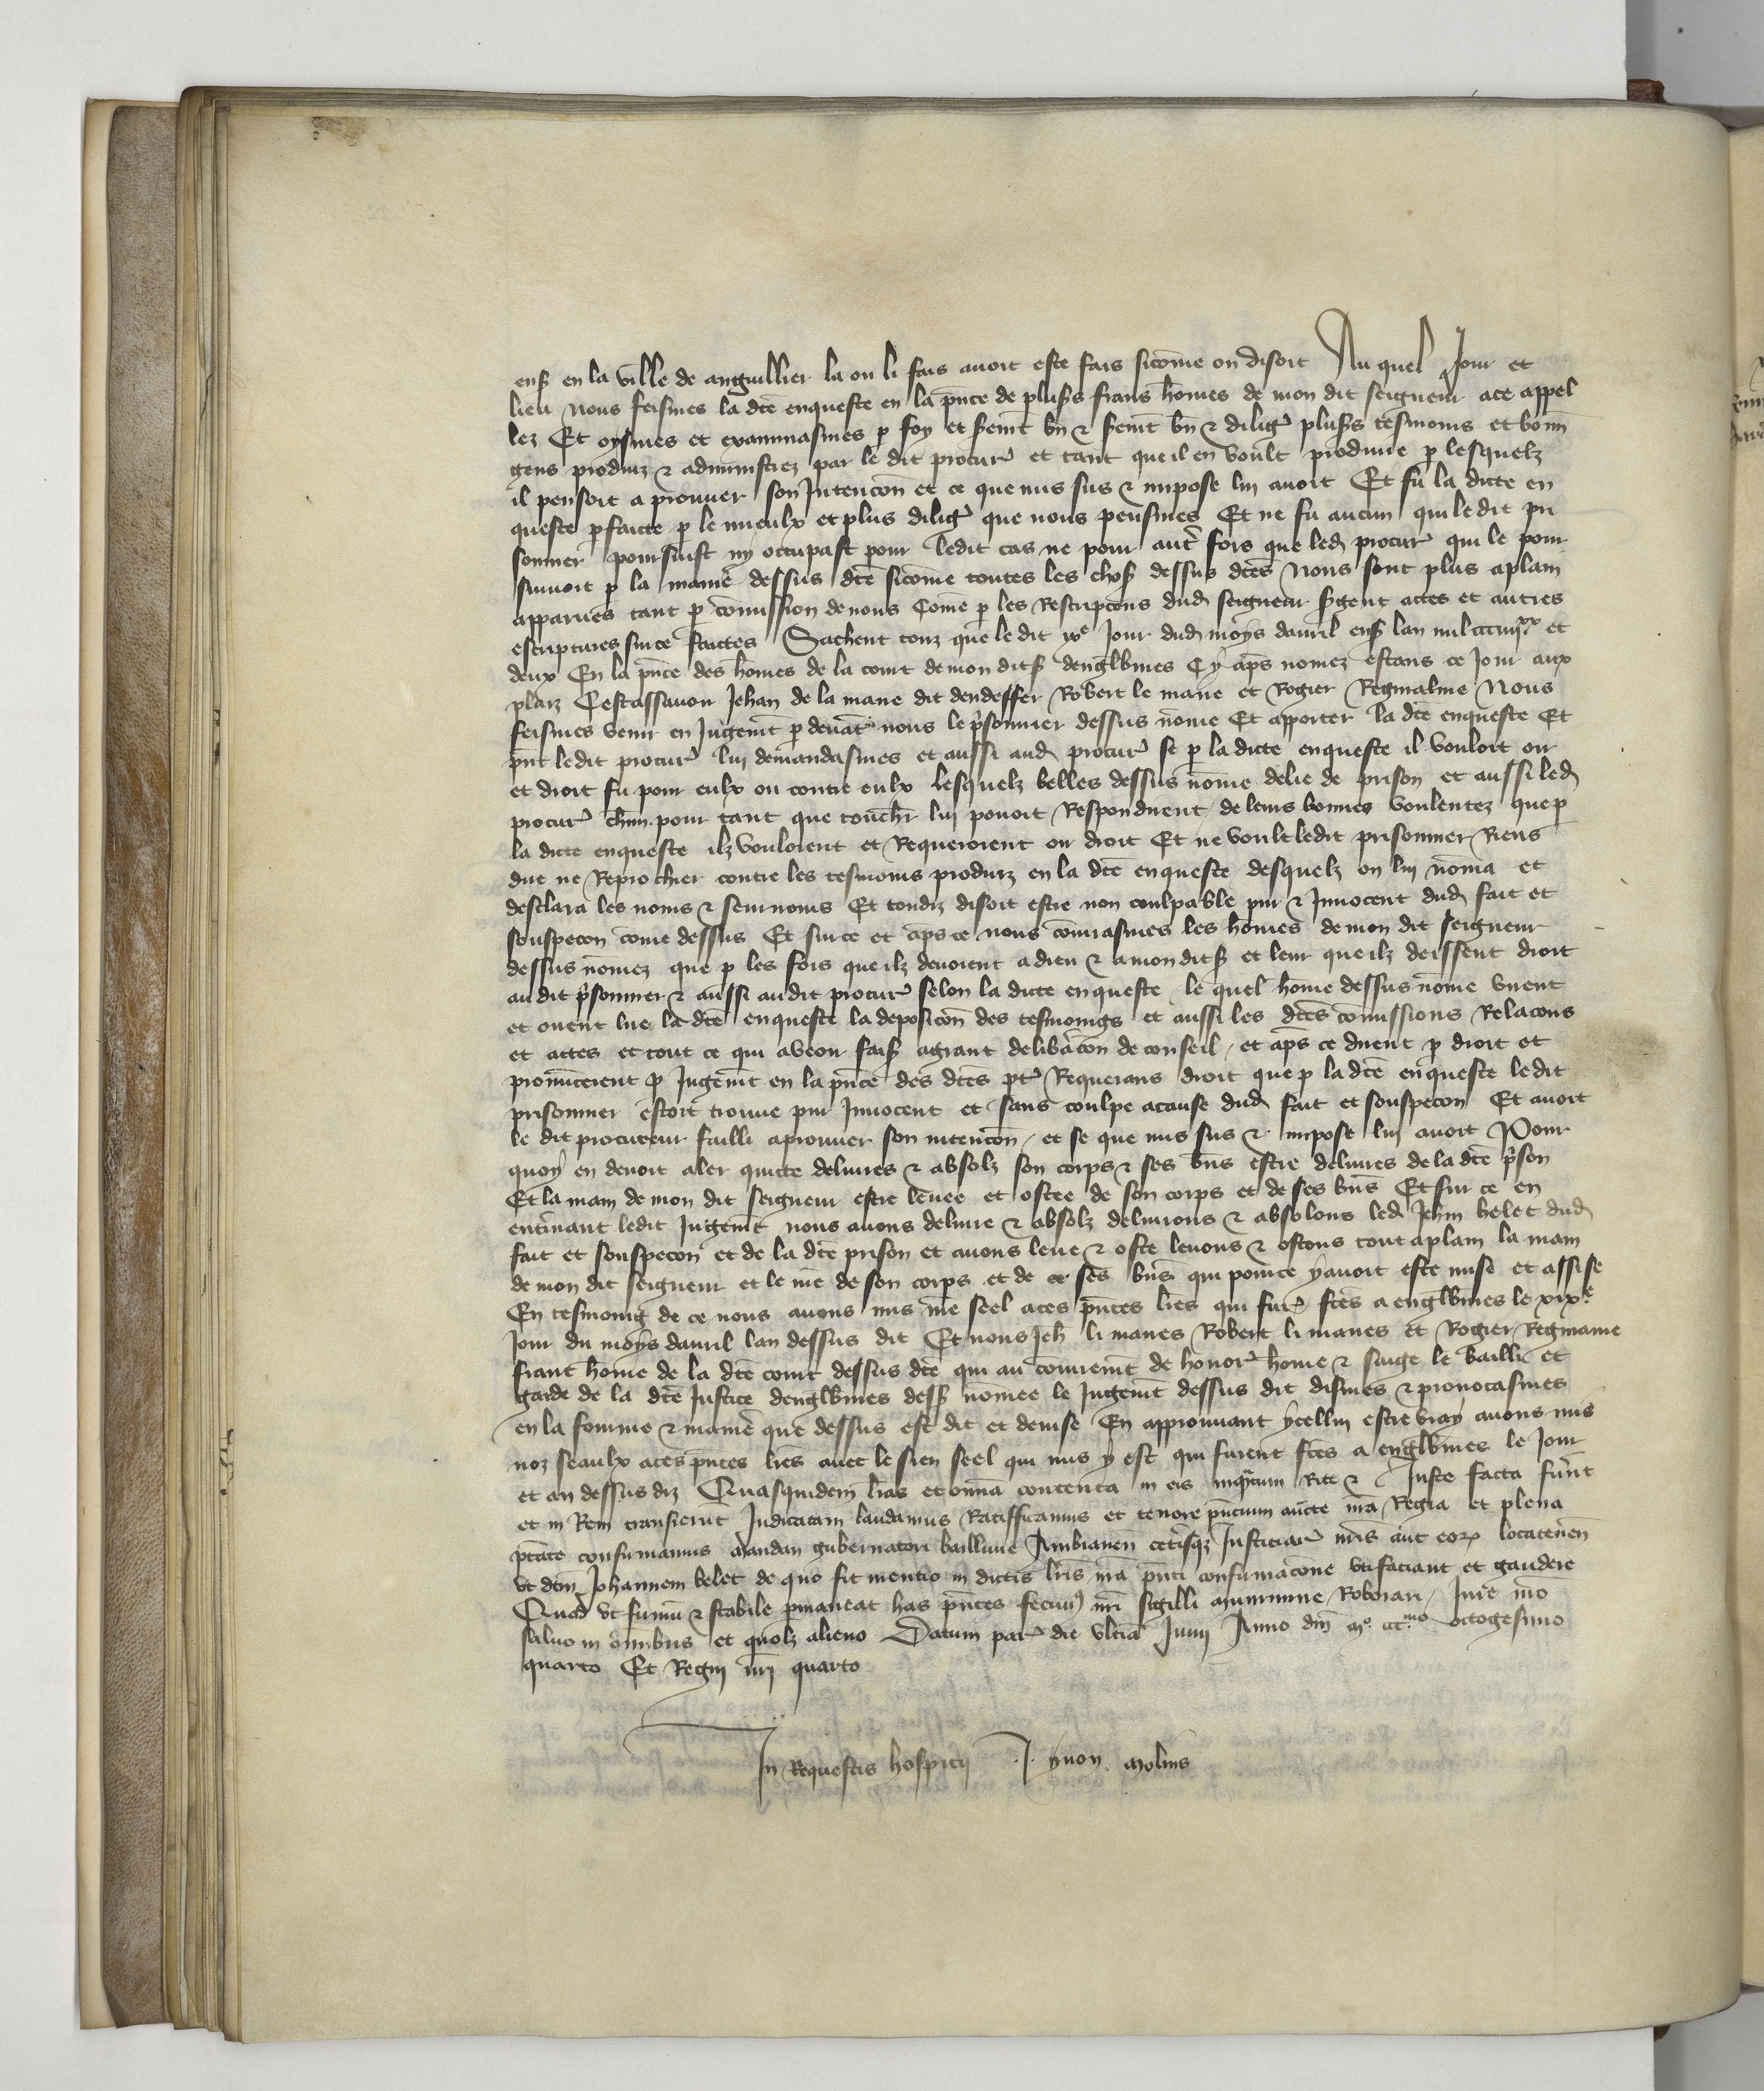 enſ en la ville de anguillier la ou li fais avoit este fais sicōme on disoit Au quel Jour et
lieu nous feismes la dc̄e enqueste en la pn̄ce de plusꝰs frans hōmes de mon dit seigneur ace appel
lez Et oysmes et examinasmes ꝑ foy et sermt bn̄ ⁊ dilig̾ plusꝰs tesmoins et bonn
gens produiz ⁊ administrez par le dit procur̾ et tant que il en voult produire ꝑ lesquelz
il pensoit a prouver son Intencōn et ce que mis sus ⁊ impose lui avoit Et fu la dicte en
queste ꝑfaicte ꝑ le mieulx et plus dilig̾ que nous peusmes Et ne fu aucun qui le dit pri
sonnier poursuist ny occupast pour ledit cas ne pour aut̾ fors que led procur̾ qui le pour
suivoit ꝑ la manie̾ dessus dc̄e sicōme toutes les choſ dessus dc̄es Nous sont plus aplain
apparues tant ꝑ cōmission de nous Cōme ꝑ les Rescripcōns dud seigneur sꝰgent actes et autres
escriptures sur ce faictes Sachent touz que le dit ixᵉ Jour dud moys davril enſ lan mil ccciiijˣˣ et
deux En la pn̄ce des hōmes de la court de mon ditſ denglb̾mes Cy ap̄s nōmez estans ce Jour aux
plaiz Cestassavoir Jehan de la mane dit dendesser Robert le mane et Rogier Reginalme Nous
feismes venir en Jugemt̄ ꝑ devant nous le p̾sonnier dessus nōme Et apporter la dc̄e enqueste Et
pn̄t ledit procur̾ lui demandasmes et aussi aud procur̾ se ꝑ la dicte enqueste il vouloit oir
et droit fu pour eulx ou contre eulx lesquelz belles dessus nōme delie de prison et aussi led
procur̾ chūn pour tant que touch̾r lui povoit Respondirent de leurs bonnes voulentez que ꝑ
la dicte enqueste ilz vouloient et Requeroient oir droit Et ne voult ledit prisonnier Riens
dire ne Reprochier contre les tesmoins produiz en la dc̄e enqueste desquelz on lui nōma et
desclara les noms ⁊ seurnoms Et toudiz disoit estre non coulpable pur ⁊ Innocent dud fait et
souspecon cōme dessus Et sur ce et ap̄s ce nous cōmrasmes les hōmes de mon dit seigneur
dessus nōmez que ꝑ les fois que ilz devoient a dieu ⁊ a mon ditſ et leur que ilz deissent droit
au dit p̾sonnier ⁊ aussi au dit procur̾ selon la dicte enqueste le quel hōme dessus nōme virent
et oirent lire la dc̄e enqueste la deposicōn des tesmoings et aussi les dc̄es cōmissions Relacōns
et actes et tout ce qui aveoir faiſ agrant delib̾acōn de conseil et ap̄s ce dirent ꝑ droit et
prononcerent ꝑ Jugemt̄ en la pn̄ce des dc̄es pt̾ Requerans droit que ꝑ la dc̄e enqueste le dit
prisonnier estoit trouve pur Innocent et sans coulpe acause dud fait et souspecon Et avoit
le dit procureur failli aprouver son intencōn et se que mis sus ⁊ impose lui avoit Pour
quoy en devoit aler quicte delivres ⁊ absolz son corps ⁊ ses bn̄s estre delivres de la dc̄e p̾son
Et la main de mon dit seigneur estre levee et ostee de son corps et de ses bn̄s Et sur ce en
entinant ledit Jugemt̄ nous avons delivre ⁊ absolz delivrons ⁊ absolons led Jehn̄ belet dud
fait et souspecon et de la dc̄e prison et avons leve ⁊ oste levons ⁊ ostons tout aplain la main
de mon dit seigneur et le nr̄e de son corps et de ce ses bn̄s qui pour ce y avoit este mise et assise
En tesmoing de ce nous avons mis nr̄e seel a ces pn̄tes lr̄es qui fur̾ fc̄es a englb̾mes le xixᵉ
Jour du moys davril lan dessus dit Et nous Jeh̄ li manes Robert li manes et Rogier Reginame
franc hōme de la dc̄e court dessus dc̄e qui au cōmiremt̄ de honor̾ hōme ⁊ saige le bailli et
garde de la dc̄e Justice denglb̾mes desſ nōmee le Jugemt̄ dessus dit disines ⁊ pronōcasmes
en la fourme ⁊ manie̾ que dessus est dit et devise En approuvant ycellui estre vray avons mis
noz seaulx a ces pn̄tes lr̄es avec le sien seel qui mis y est qui furent fc̄es a englb̾mes le Jour
et an dessus diz Quasquidem lr̄as et om̄ia contenta in eis inq̄ntum Rite ⁊ Juste facta fu̾nt
et in Rem transierūt Judicatam laudamus Ratifficamus et tenore pn̄cium auc̄te nr̄a Regia et plena
ptāte confirmamus Mandan̄ gubernatori baillivie Ambianen̄ cet̾isqꝫ Justiciar̾ nr̄is aut eoꝝ locatenen̄
ut dc̄m Johannem belet de quo fit mentio in dictis lr̄is nr̄a pn̄ti confirmacōne uti faciant et gaudere
Quod ut firmū ⁊ stabile ꝑmaneat has pn̄tes fecimꝰ nr̄i sigilli munimine Roborari Jure nr̄o
salvo in om̄ibus et quol̄z alieno Datum par̾ die ultīa Junij Anno dn̄i mº ccc.ᵐᵒ octogesimo
quarto Et Regni nr̄i quarto
In Requestis hospicij .J. yvon. Molins